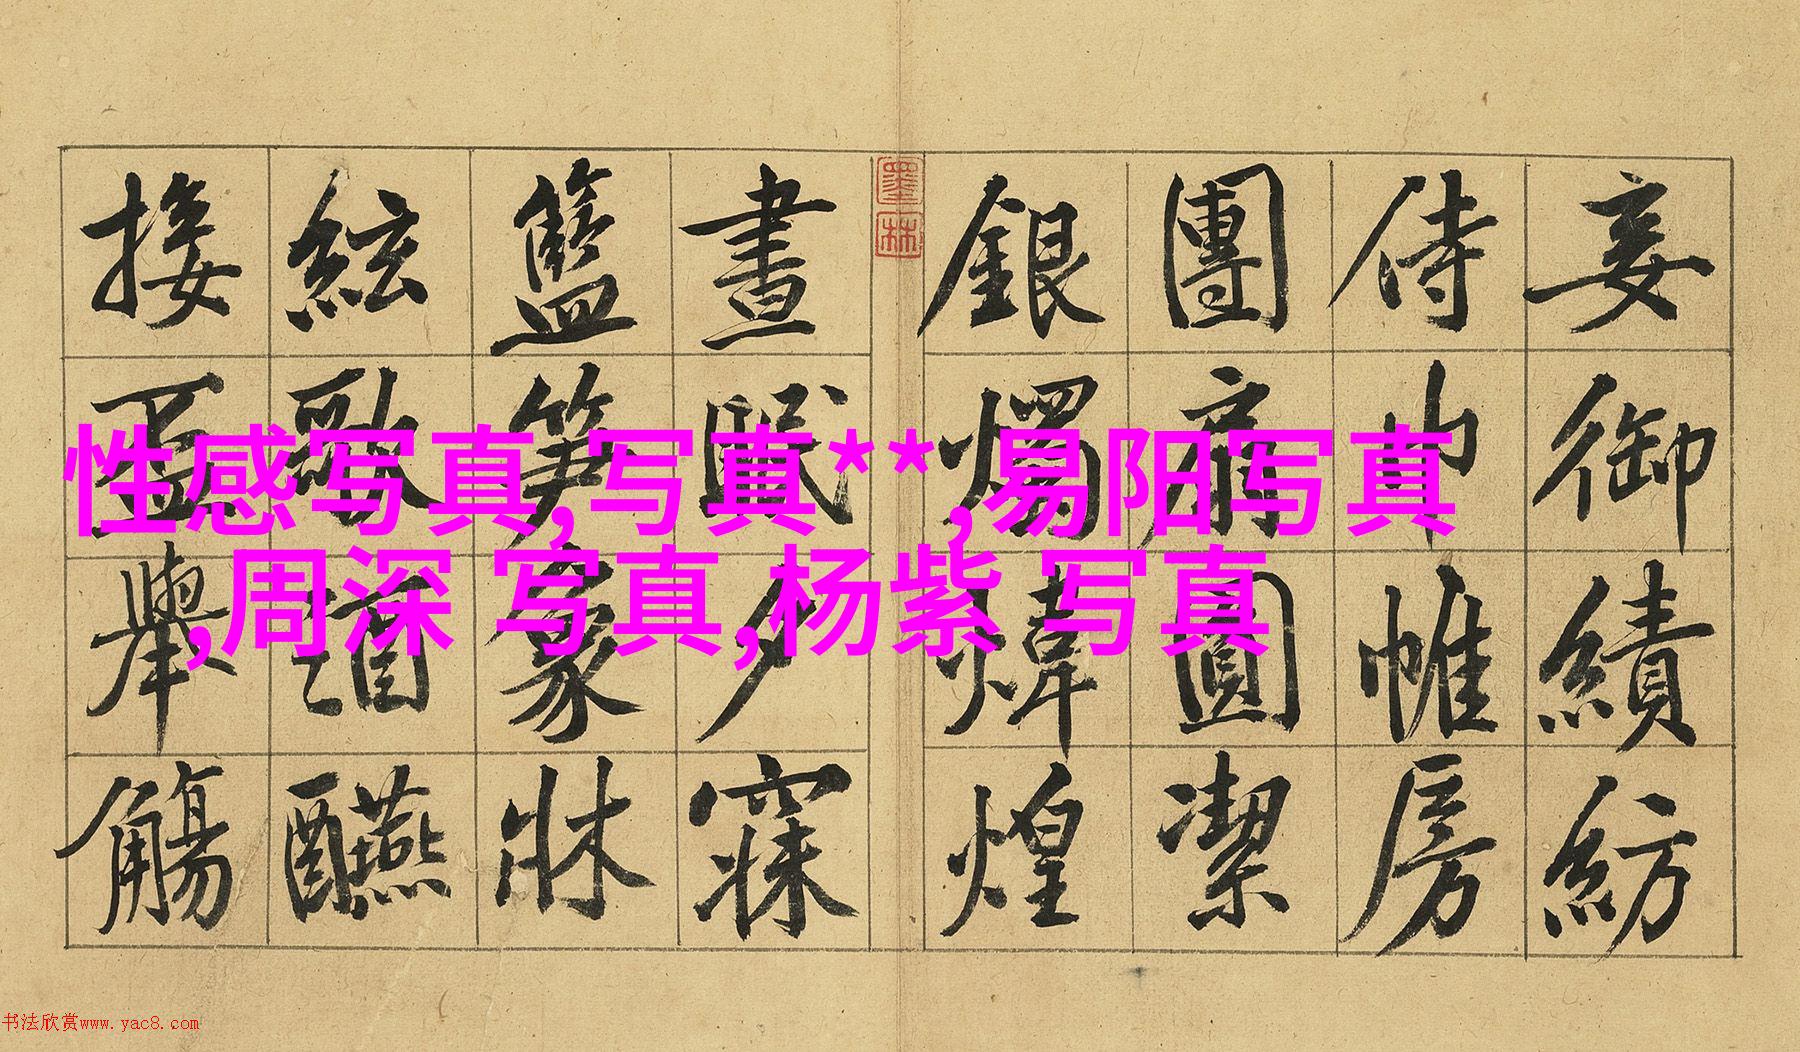 妾御績紡
侍巾帷房
團扇圓潔
銀燭煒煌
墨林
晝眠夕寐
籃笋象牀
絃歌酒醼
接盃舉觴
性感写真,写真**,易阳写真
,周深 写真,杨紫 写真
书法欣赏www.yac8.com